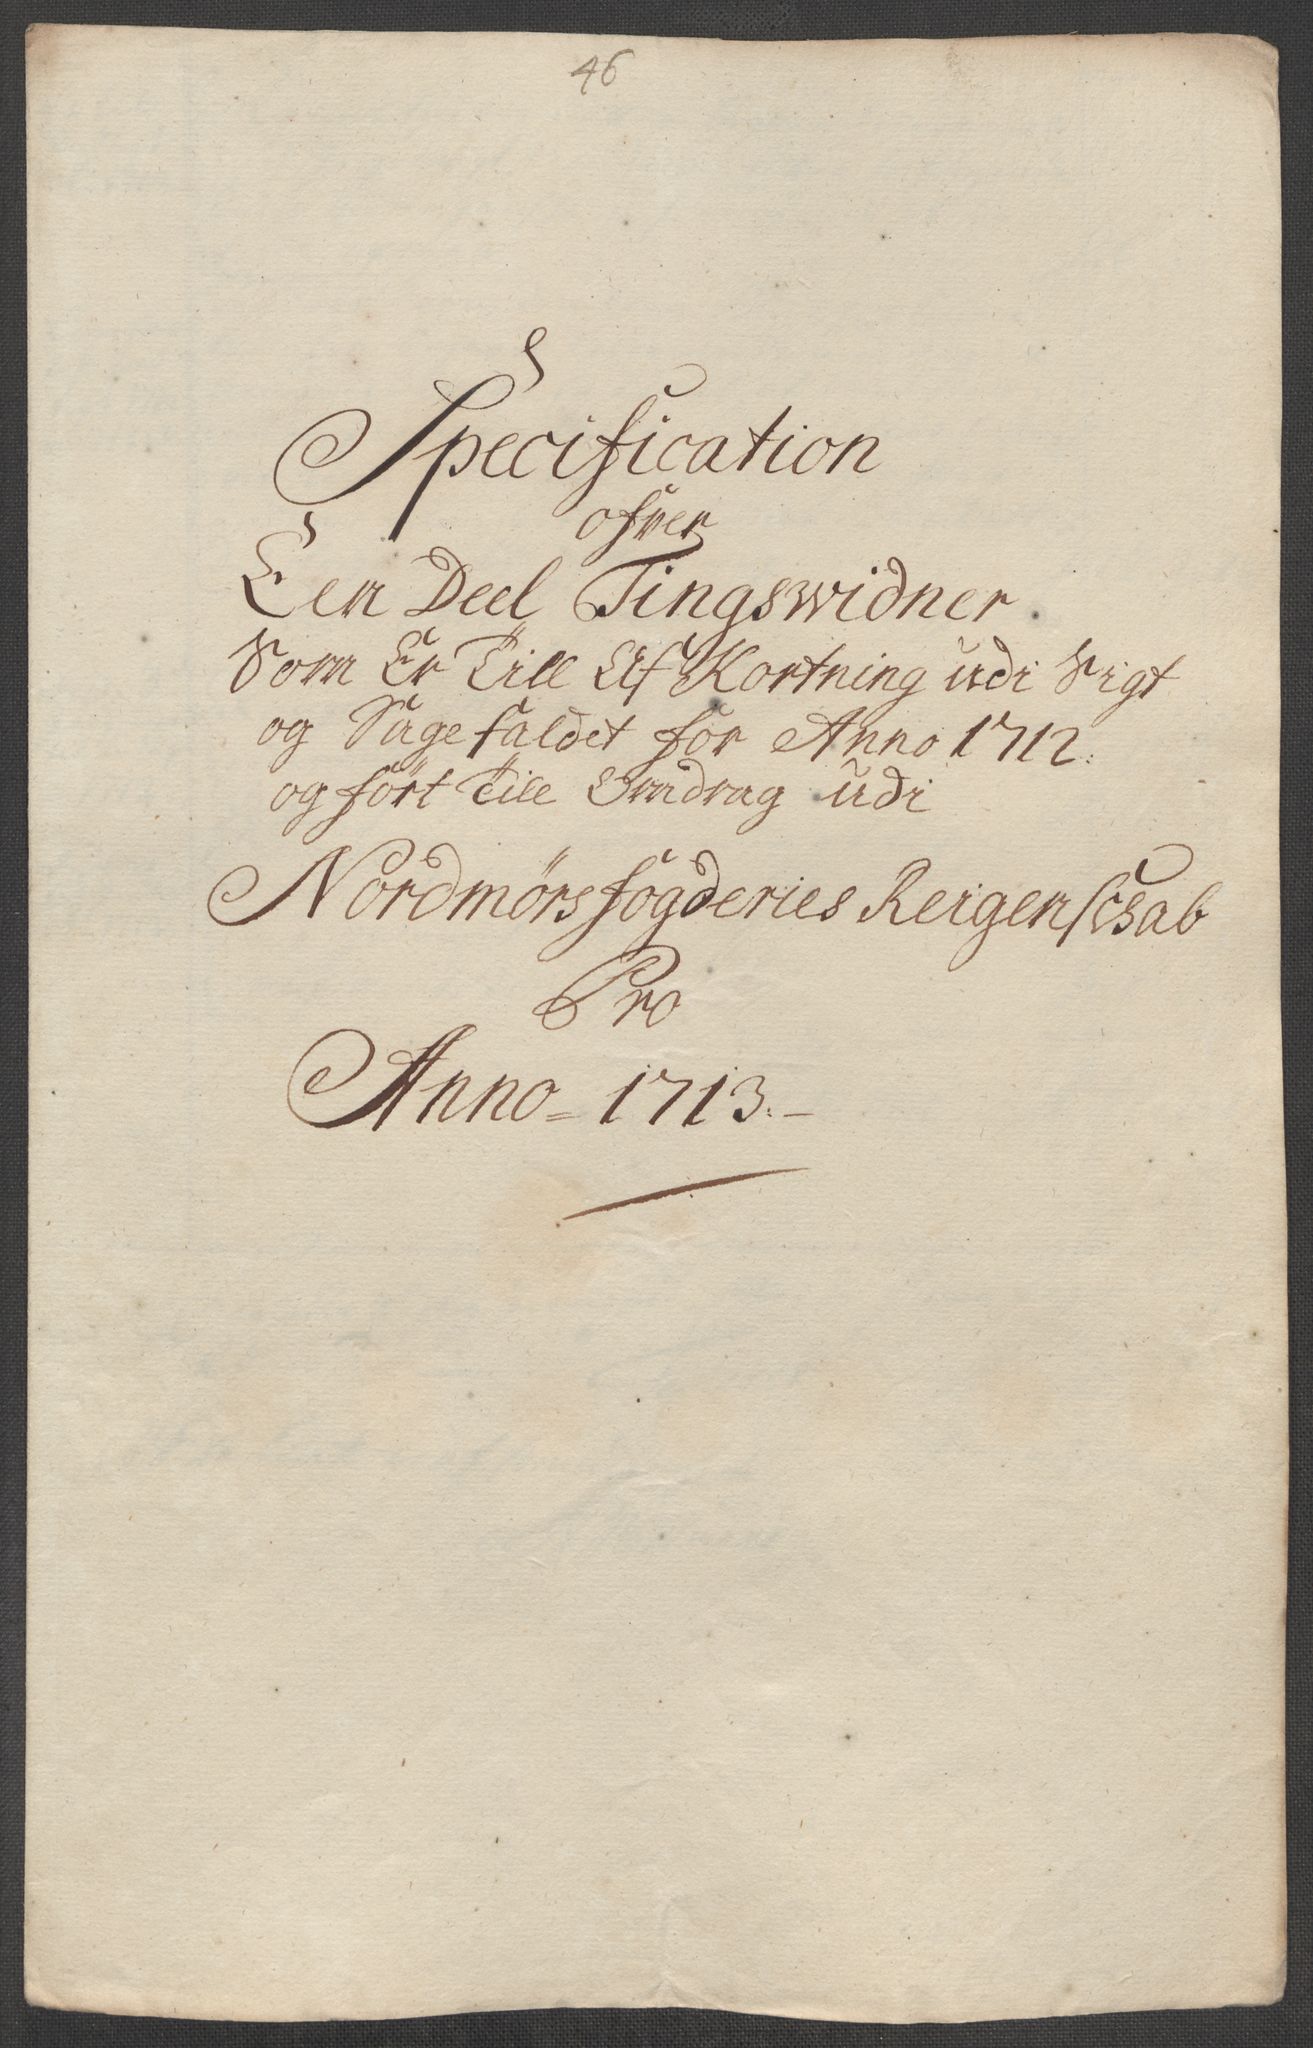 46
Specification
ofver
Een Deel Tingswidner
Som Er Till Af Kortning udi Sigt
og Sagefaldet for Anno 1712.
og fört Till Omdrag udi
Nordmörsfogderies Reigenscsab
Pro
Anno = 1713. –